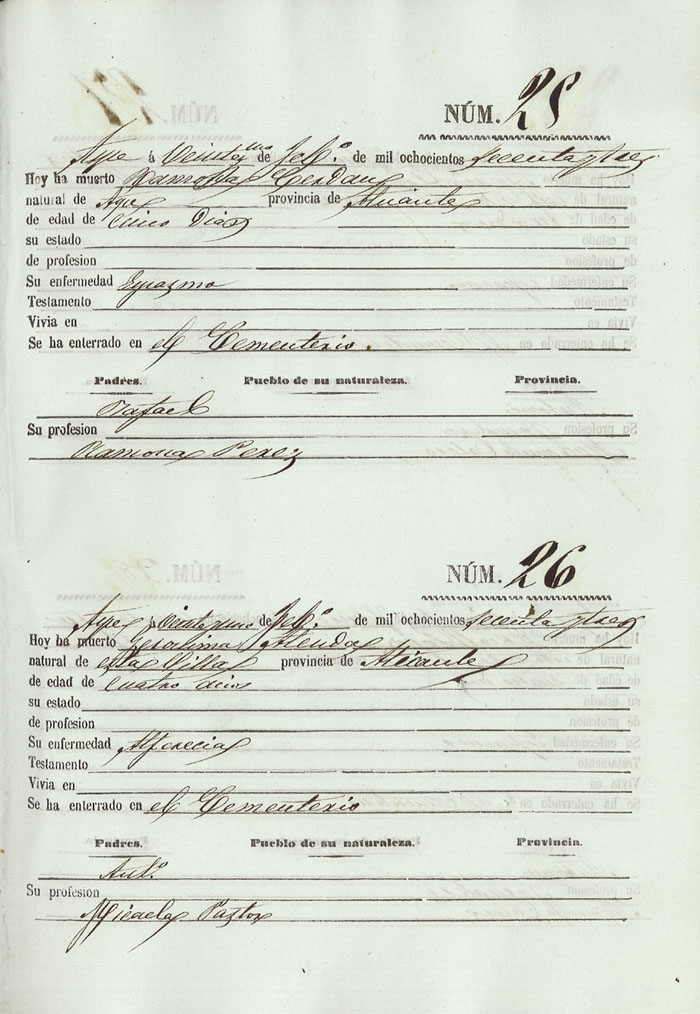 NÚM. 25
Aspe á Veinte y uno de Feb.º de mil ochocientos sesenta y tres
Hoy ha muerto Ramona Cerdan
natural de Aspe provincia de Alicante
de edad de Cinco Dias
su estado
de profesion
Su enfermedad Espasmo
Testamento
Vivia en
Se ha enterrado en el Cementerio.
Padres. Pueblo de su naturaleza. Provincia.
Rafael
Su profesion
Ramona Perez
NÚM. 26
Aspe á Veinte y uno de Feb.º de mil ochocientos sesenta y tres
Hoy ha muerto Gerolima Alenda
natural de esta Villa provincia de Alicante
de edad de Cuatro años
su estado
de profesion
Su enfermedad Alferecia
Testamento
Vivia en
Se ha enterrado en el Cementerio
Padres. Pueblo de su naturaleza. Provincia.
Ant.º
Su profesion
Micaela Pastor